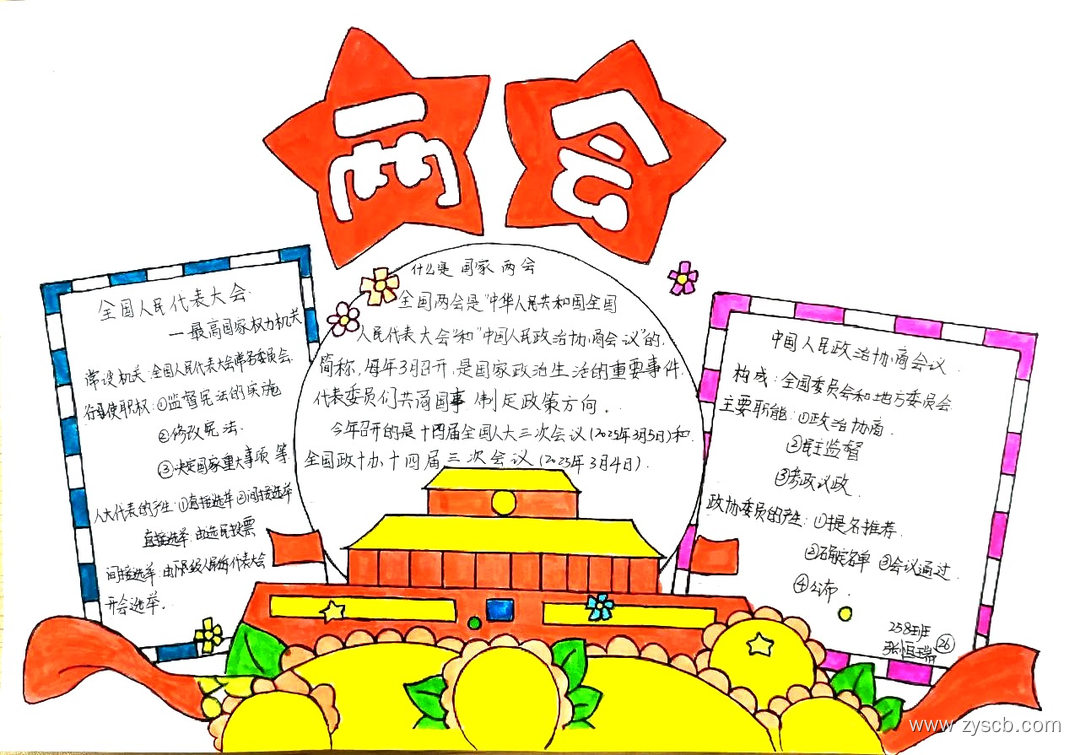 两会
全国人民代表大会
—最高国家权力机关
常设机关:全国人民代表大会常务委员会
行使职权:①监督宪法的实施
②修改宪法.
③决定国家重大事项 等
人大代表的产生:①直接选举 ②间接选举
直接选举:由选民投票
间接选举:由下级人民代表大会
开会选举.
什么是 国家 两会
全国两会是“中华人民共和国全国
人民代表大会”和“中国人民政治协商会议”的
简称,每年3月召开,是国家政治生活的重要事件.
代表委员们共商国事 制定政策方向.
今年召开的是十四届全国人大三次会议(2025年3月5日)和
全国政协十四届三次会议(2025年3月4日).
中国人民政治协商会议
构成:全国委员会和地方委员会
主要职能:①政治协商.
②民主监督
③参政议政.
政协委员的产生:①提名推荐.
②确定名单 ③会议通过.
④公布.
258班
张恒瑞 26
www.zyscb.com